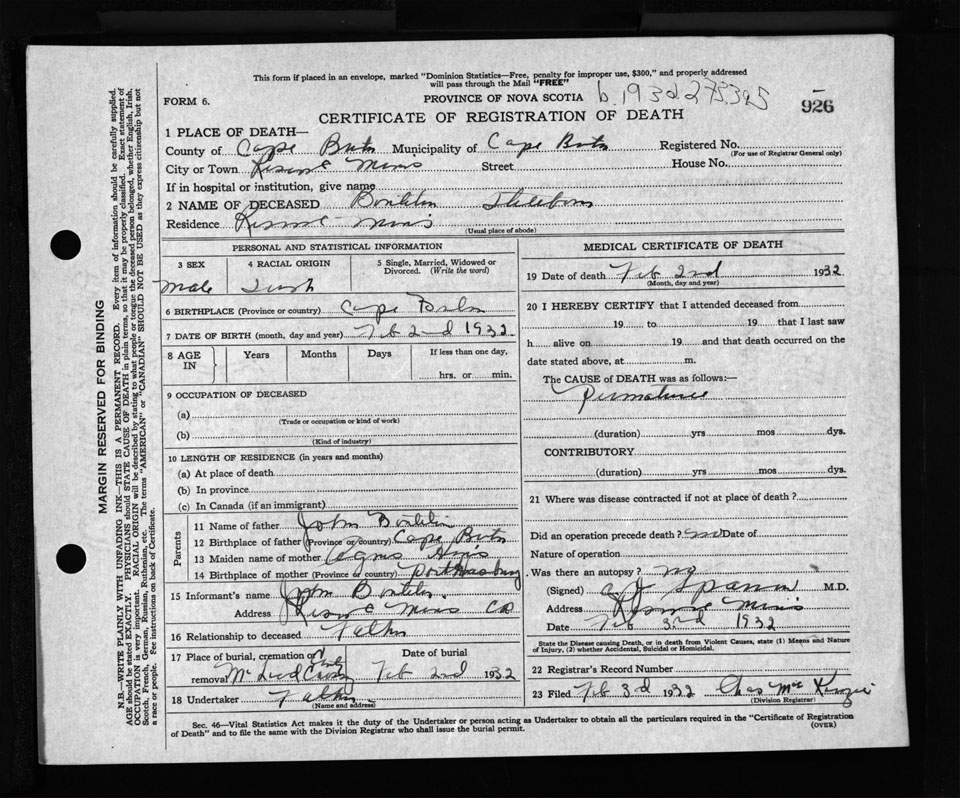 This form if placed in an envelope, marked "Dominion Statistics—Free, penalty for improper use, $300," and properly addressed
will pass through the Mail "FREE"
FORM 6.
PROVINCE OF NOVA SCOTIA
926
CERTIFICATE OF REGISTRATION OF DEATH
1 PLACE OF DEATH—
County of Cape Municipality of Cape Registered No.
(For use of Registrar General only)
City or Town Mines Street House No.
If in hospital or institution, give name
2 NAME OF DECEASED
Residence Mines
(Usual place of abode)
PERSONAL AND STATISTICAL INFORMATION
3 SEX
4 RACIAL ORIGIN
5 Single, Married, Widowed or Divorced. (Write the word)
Male
6 BIRTHPLACE (Province or country) Cape
7 DATE OF BIRTH (month, day and year) Feb 2nd 1932
8 AGE IN Years Months Days If less than one day,
hrs. or min.
9 OCCUPATION OF DECEASED
(a)
(Trade or occupation or kind of work)
(b)
(Kind of industry)
10 LENGTH OF RESIDENCE (in years and months)
(a) At place of death
(b) In province
(c) In Canada (if an immigrant)
Parents
11 Name of father John
12 Birthplace of father (Province or country) Cape
13 Maiden name of mother
14 Birthplace of mother (Province or country)
15 Informant's name John
Address Mines CB
16 Relationship to deceased Father
17 Place of burial, cremation or removal Date of burial
Feb 2nd 1932
18 Undertaker Father
(Name and address)
MEDICAL CERTIFICATE OF DEATH
19 Date of death Feb 2nd 1932
(Month, day and year)
20 I HEREBY CERTIFY that I attended deceased from
19 to 19 that I last saw
h alive on 19 and that death occurred on the
date stated above, at m.
The CAUSE of DEATH was as follows:—
(duration) yrs mos dys.
CONTRIBUTORY
(duration) yrs mos dys.
21 Where was disease contracted if not at place of death?
Did an operation precede death? no Date of
Nature of operation
Was there an autopsy? no
(Signed) M.D.
Address Mines
Date Feb 3rd 1932
State the Disease causing Death, or in death from Violent Causes, state (1) Means and Nature
of Injury, (2) whether Accidental, Suicidal or Homicidal.
22 Registrar's Record Number
23 Filed Feb 3rd 1932 Chas
(Division Registrar)
Sec. 46—Vital Statistics Act makes it the duty of the Undertaker or person acting as Undertaker to obtain all the particulars required in the "Certificate of Registration
of Death" and to file the same with the Division Registrar who shall issue the burial permit.
(OVER)
MARGIN RESERVED FOR BINDING
N.B.—WRITE PLAINLY WITH UNFADING INK—THIS IS A PERMANENT RECORD. Every item of information should be carefully supplied.
AGE should be stated EXACTLY. PHYSICIANS should STATE CAUSE OF DEATH in plain terms, so that it may be properly classified. Exact statement of
OCCUPATION is very important. RACIAL ORIGIN will be described by stating to what people or tongue the deceased person belonged, whether English, Irish,
Scotch, French, German, Russian, Ruthenian, etc. The terms "AMERICAN" or "CANADIAN" SHOULD NOT BE USED as they express citizenship but not
a race or people. See instructions on back of Certificate.